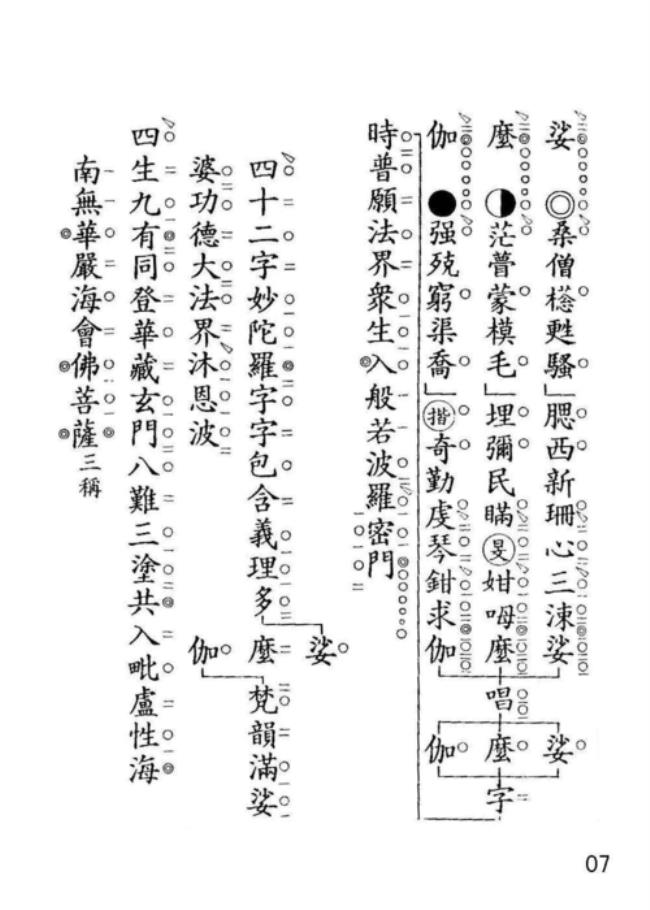 娑 ◎ 桑僧櫒甦騷 腮西新珊心三涑娑
麼 ◐ 茫瞢蒙模毛 埋彌民瞞旻姏呣麼 唱 娑麼伽 字
伽 ● 强殑窮渠喬 揩奇勤虔琴鉗求伽
時普願法界衆生入般若波羅密門
四十二字妙陀羅字字包含義理多 娑麼伽 梵韻滿娑
婆功德大法界沐恩波
四生九有同登華藏玄門八難三塗共入毗盧性海
南無華嚴海會佛菩薩三稱
07